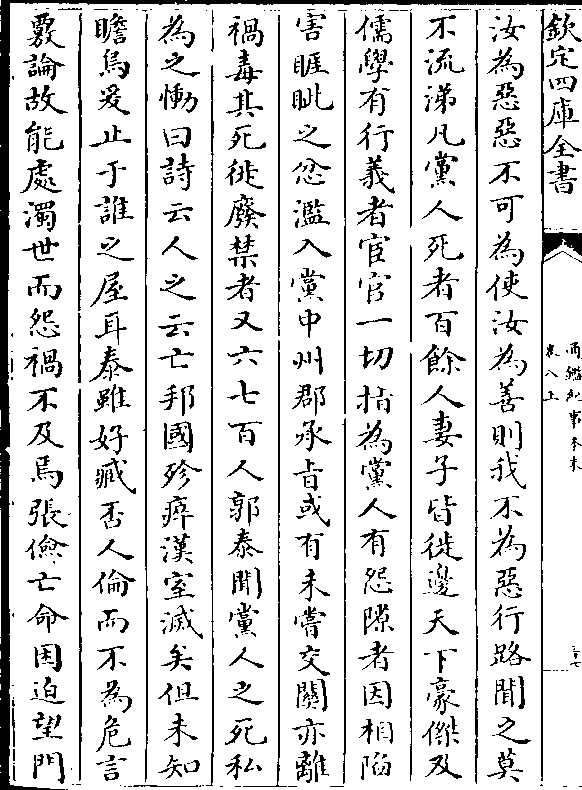 欽定四庫全書
汝為惡惡不可為使汝為善則我不為惡行路聞之莫
不流涕凡黨人死者百餘人妻子皆徙邊天下豪傑及
儒學有行義者宦官一切指為黨人有怨隙者因相陷
害睚眦之忿濫入黨中州郡承旨或有未嘗交關亦離
禍毒其死徙廢禁者又六七百人郭泰聞黨人之死私
為之慟曰詩云人之云亡邦國殄瘁漢室滅矣但未知
瞻烏爰止于誰之屋耳泰雖好臧否人倫而不為危言
覈論故能處濁世而怨禍不及焉張儉亡命困迫望門